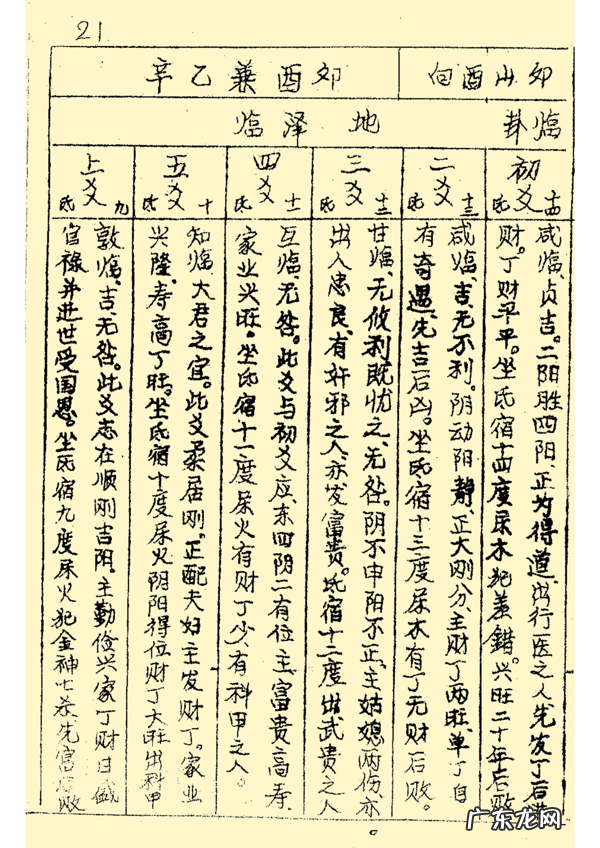 21
卯山酉向
卯酉兼乙辛
临卦
地泽临
初爻
氐十四
咸临、贞吉。二阳胜四阳、正为得道、出行医之人先发丁后
财。丁财平平。坐氐宿十四度属木犯差錯。兴旺二十年后败
二爻
氐十三
咸临、吉、无不利。阴动阳静、正大刚分、主财丁两旺、单丁自
有奇遇、先吉后凶。坐氐宿十三度属木有丁无财后败。
三爻
氐十二
甘临、无攸利既忧之、无咎。阴不中阳不正、主姑媳两伤、亦
出入忠良、有奸邪之人、亦发富贵。氐宿十二度出武贵之人
四爻
氐十一
互临、无咎。此爻与初爻应、东四阴二有位、主富贵高寿、
家业兴旺。坐氐宿十一度属火有财丁少有科甲之人。
五爻
氐十
知临、大君之宜。此爻柔居刚、正配夫妇主发财丁。家业
兴隆、寿高丁旺。坐氐宿十度属火阴阳得位财丁大旺出科甲
上爻
氐九
敦临、吉、无咎。此爻志在顺刚吉阳、主勤俭兴家丁财日盛
官禄并进世受国恩。坐氐宿九度属火犯金神七杀先富后败
广东龙网